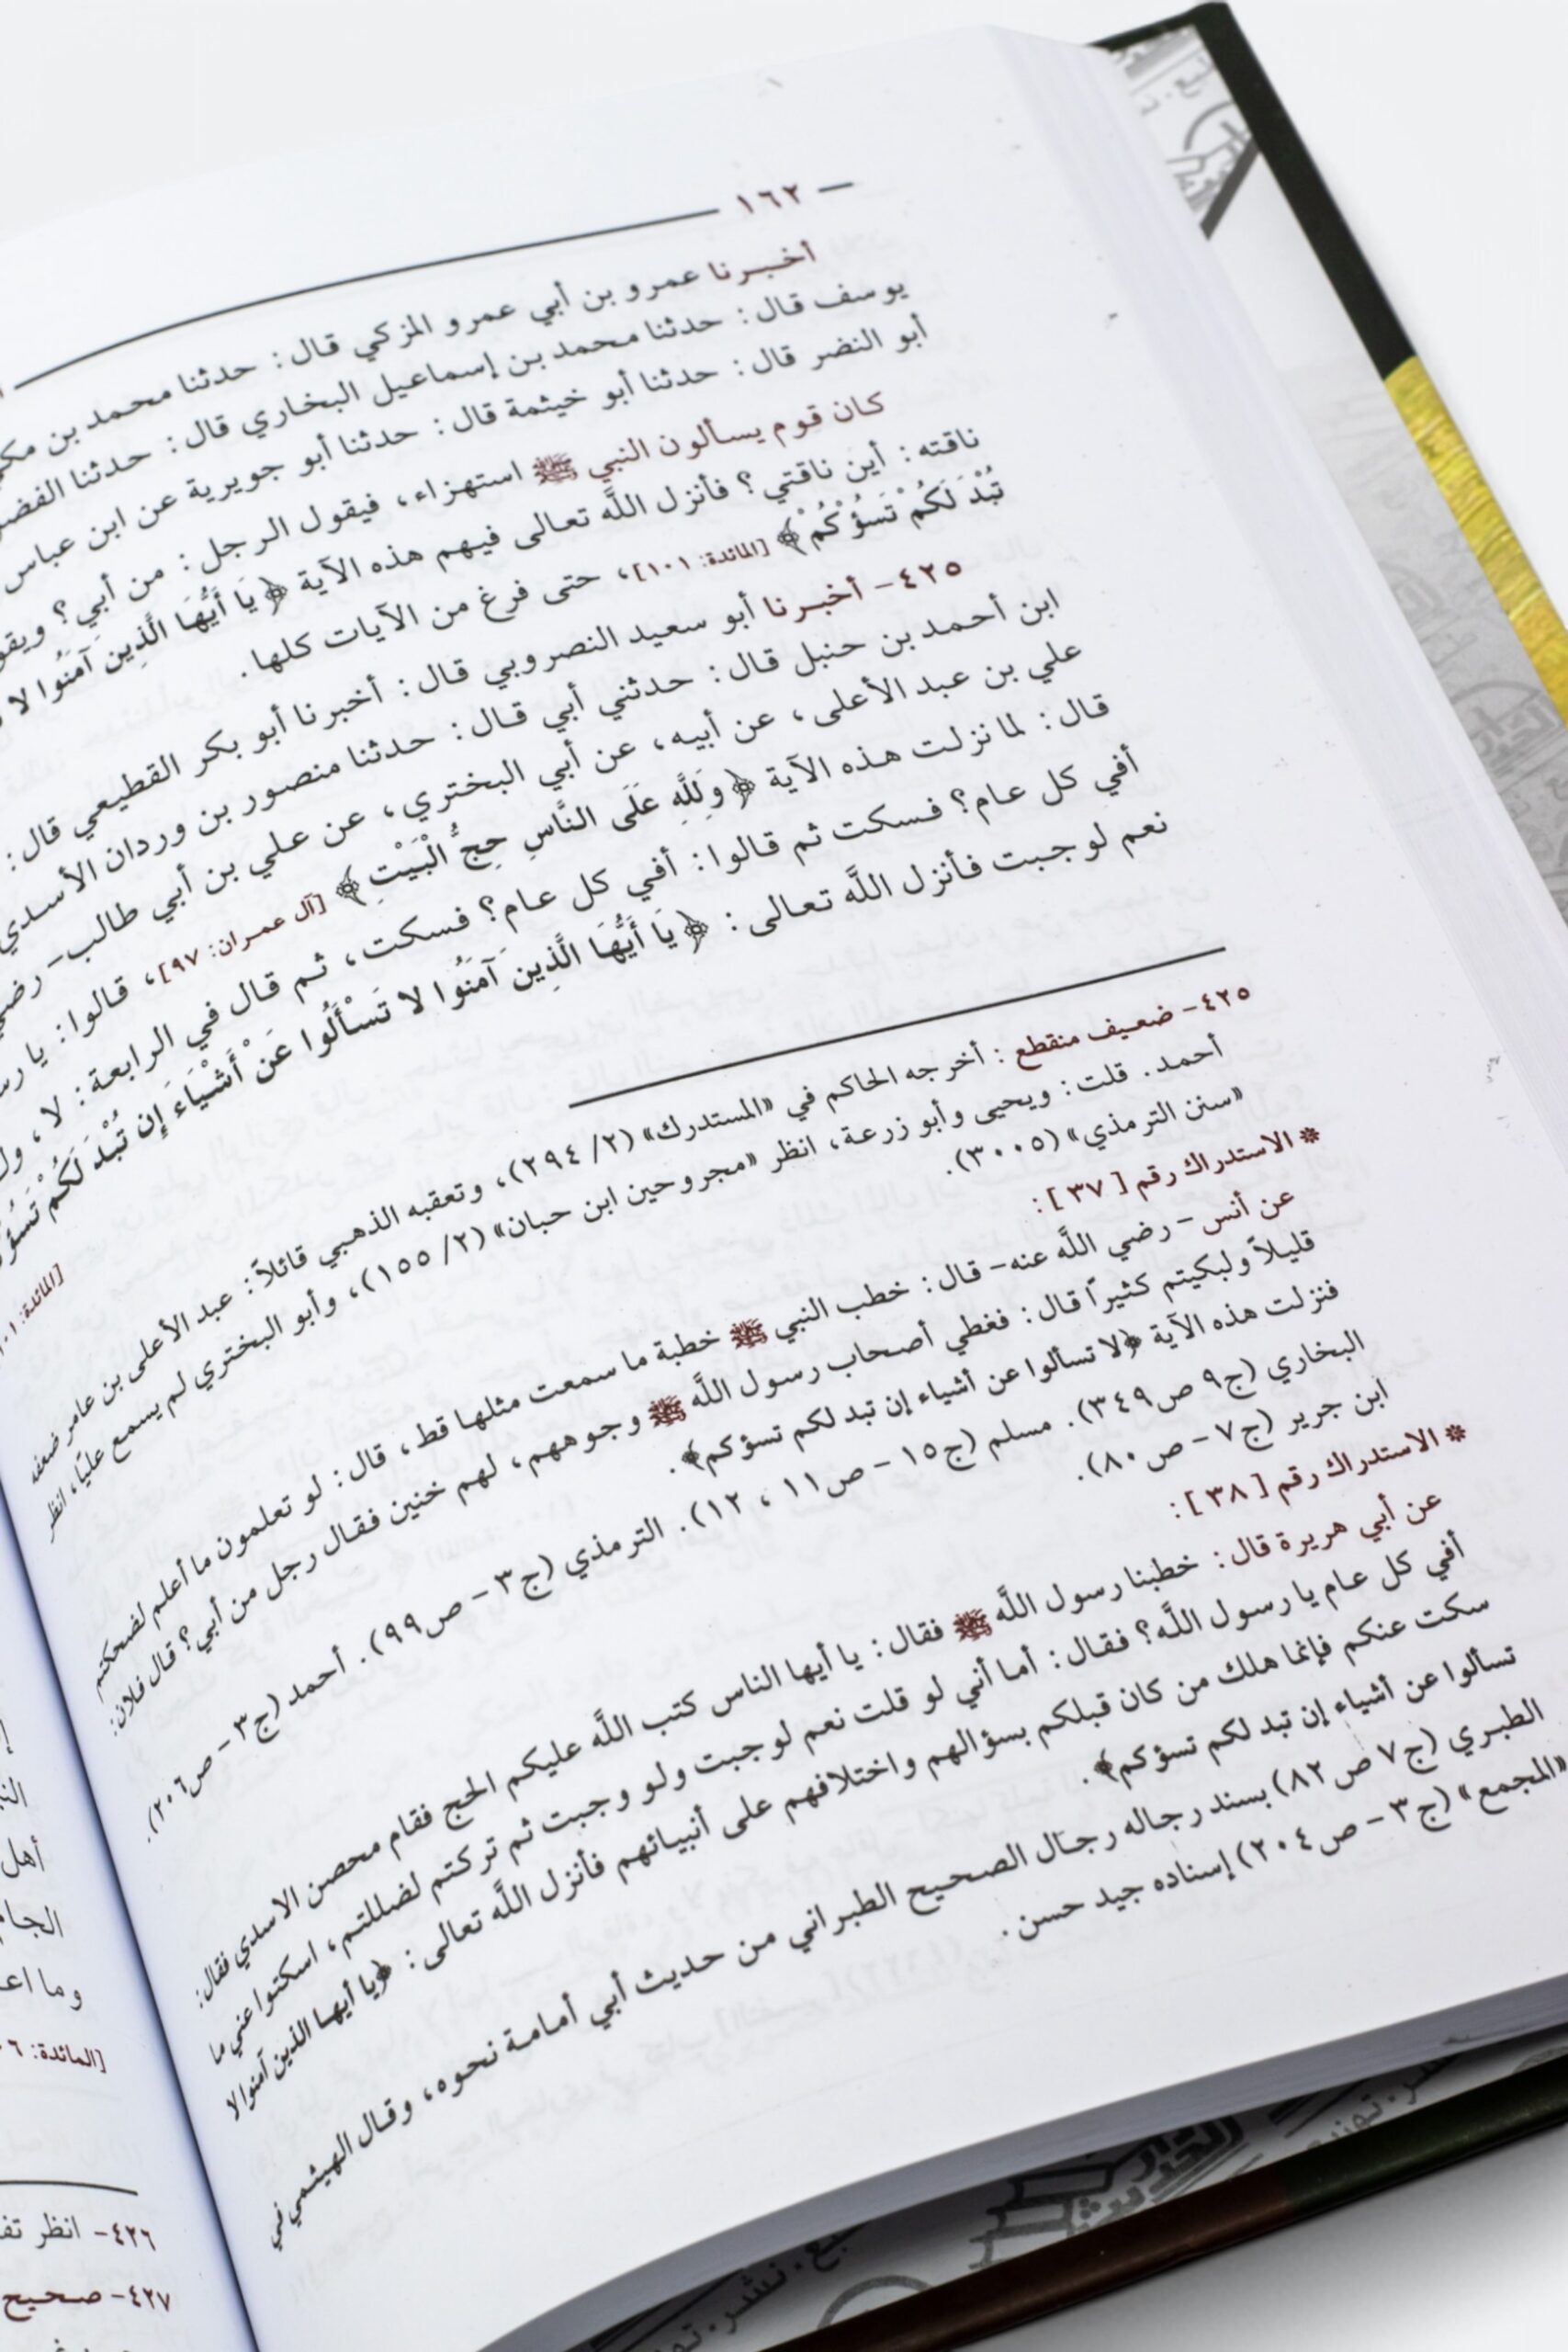 ١٦٢
أخبرنا عمرو بن أبي عمرو المزكي قال: حدثنا محمد بن
يوسف قال: حدثنا محمد بن إسماعيل البخاري قال: حدثنا
أبو النضر قال: حدثنا أبو خيثمة قال: حدثنا أبو جويرية عن ابن عباس
كان قوم يسألون النبي ﷺ استهزاء، فيقول الرجل: من أبي؟
ناقته: أين ناقتي؟ فأنزل اللَّه تعالى فيهم هذه الآية ﴿يَا أَيُّهَا الَّذِين آمَنُوا لا
تُبْدَ لَكُمْ تَسُؤْكُمْ﴾ [المائدة: ١٠١]، حتى فرغ من الآيات كلها.
٤٢٥- أخبرنا أبو سعيد النصروبي قال: أخبرنا أبو بكر القطيعي قال:
ابن أحمد بن حنبل قال: حدثني أبي قال: حدثنا منصور بن وردان الأسدي
علي بن عبد الأعلى، عن أبيه، عن أبي البختري، عن علي بن أبي طالب-
قال: لما نزلت هذه الآية ﴿وَلِلَّهِ عَلَى النَّاسِ حِجُّ الْبَيْتِ﴾ [آل عمران: ٩٧]، قالوا: يا
أفي كل عام؟ فسكت ثم قالوا: أفي كل عام؟ فسكت، ثم قال في الرابعة: لا،
نعم لوجبت فأنزل اللَّه تعالى: ﴿يَا أَيُّهَا الَّذِين آمَنُوا لا تَسْأَلُوا عَنْ أَشْيَاءَ إِن تُبْدَ لَكُمْ
[المائدة:
٤٢٥- ضعيف منقطع: أخرجه الحاكم في «المستدرك» (٢/ ٢٩٤)، وتعقبه الذهبي قائلاً: عبد الأعلى بن عامر ضعفه
أحمد. قلت: ويحيى وأبو زرعة، انظر «مجروحين ابن حبان» (٢/ ١٥٥)، وأبو البختري لم يسمع عليًا، انظر
«سنن الترمذي» (٣٠٠٥).
* الاستدراك رقم [٣٧]:
عن أنس - رضي اللَّه عنه- قال: خطب النبي ﷺ خطبة ما سمعت مثلها قط، قال: لو تعلمون ما أعلم لضحكتم
قليلاً ولبكيتم كثيراً قال: فغطي أصحاب رسول اللَّه ﷺ وجوههم، لهم خنين فقال رجل من أبي؟ قال فلان:
فنزلت هذه الآية ﴿لا تسألوا عن أشياء إن تبد لكم تسؤكم﴾.
البخاري (ج٩ ص٣٤٩). مسلم (ج١٥ - ص١١، ١٢). الترمذي (ج٣ - ص٩٩). أحمد (ج٣ - ص٢٠٦).
ابن جرير (ج٧ - ص٨٠).
* الاستدراك رقم [٣٨]:
عن أبي هريرة قال: خطبنا رسول اللَّه ﷺ فقال: يا أيها الناس كتب اللَّه عليكم الحج فقام محصن الاسدي فقال:
أفي كل عام يا رسول اللَّه؟ فقال: أما أني لو قلت نعم لوجبت ولو وجبت ثم تركتم لضللتم، اسكتوا عني ما
سكت عنكم فإنما هلك من كان قبلكم بسؤالهم واختلافهم على أنبيائهم فأنزل اللَّه تعالى: ﴿يا أيها الذين آمنوا لا
تسألوا عن أشياء إن تبد لكم تسؤكم﴾.
الطبري (ج٧ ص٨٢) بسند رجاله رجال الصحيح الطبراني من حديث أبي أمامة نحوه، وقال الهيثمي في
«المجمع» (ج٣ - ص٢٠٤) إسناده جيد حسن.
أهل
[المائدة:
٤٢٦- انظر
٤٢٧- صحيح